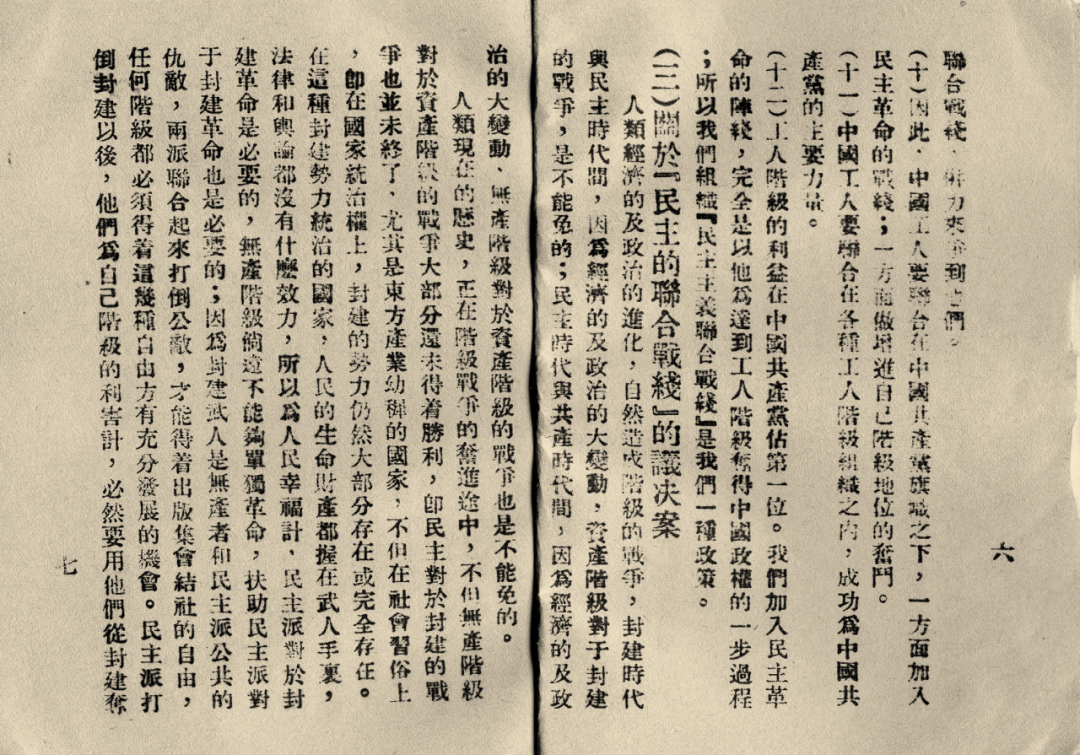 聯合戰綫、併力來爭到他們。
(十)因此、中國工人要聯合在中國共產黨旗幟之下，一方面加入
民主革命的戰綫；一方面做增進自己階級地位的奮鬥。
(十一)中國工人要聯合在各種工人階級組織之內，成功爲中國共
產黨的主要力量。
(十二)工人階級的利益在中國共產黨佔第一位。我們加入民主革
命的陣綫，完全是以他爲達到工人階級奪得中國政權的一步過程
；所以我們組織『民主主義聯合戰綫』是我們一種政策。
(二)關於『民主的聯合戰綫』的議決案
人類經濟的及政治的進化，自然造成階級的戰爭，封建時代
與民主時代間，因爲經濟的及政治的大變動，資產階級對于封建
的戰爭，是不能免的；民主時代與共產時代間，因爲經濟的及政
六
治的大變動、無產階級對於資產階級的戰爭也是不能免的。
人類現在的歷史，正在階級戰爭的奮進途中，不但無產階級
對於資產階級的戰爭大部分還未得着勝利，卽民主對於封建的戰
爭也並未終了、尤其是東方產業幼穉的國家，不但在社會習俗上
，卽在國家統治權上，封建的勢力仍然大部分存在或完全存在。
在這種封建勢力統治的國家，人民的生命財產都握在武人手裏，
法律和輿論都沒有什麽效力，所以爲人民幸福計、民主派對於封
建革命是必要的，無產階級倘還不能夠單獨革命，扶助民主派對
于封建革命也是必要的；因爲封建武人是無產者和民主派公共的
仇敵，兩派聯合起來打倒公敵，才能得着出版集會結社的自由，
任何階級都必須得着這幾種自由方有充分發展的機會。民主派打
倒封建以後，他們爲自己階級的利害計，必然要用他們從封建奪
七